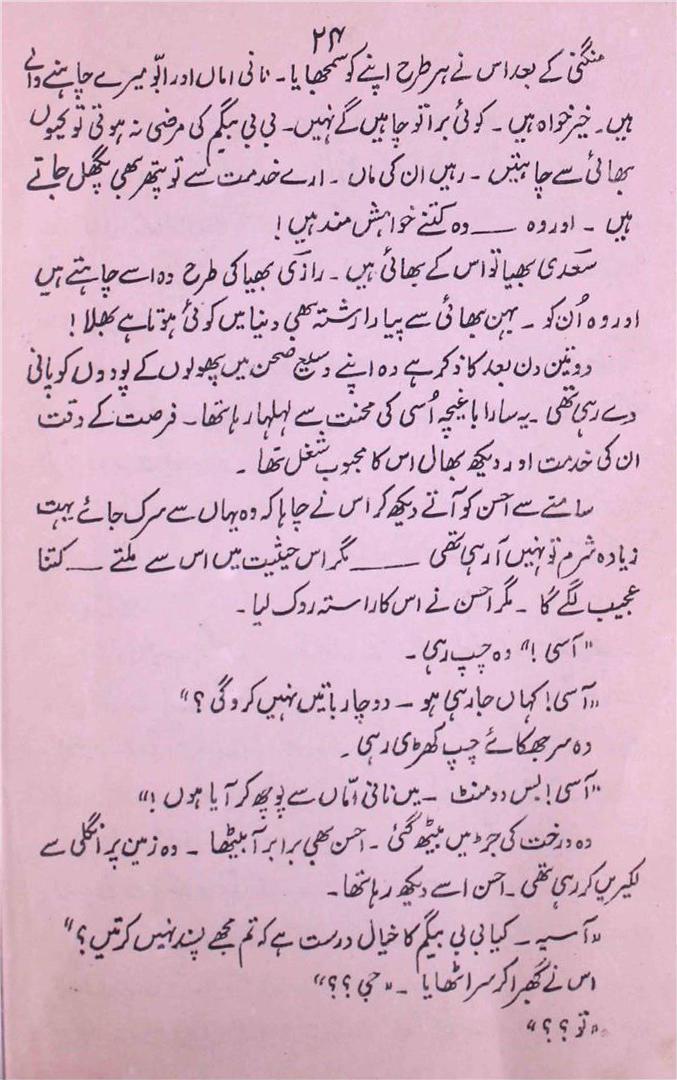 ۲۴
منگنی کے بعد اس نے ہر طرح اپنے کو سمجھایا۔ نانی اماں اور ابّو میرے چاہنے والے
ہیں۔ خیر خواہ ہیں۔ کوئی برا تو چاہیں گے نہیں۔ بی بی بیگم کی مرضی نہ ہوتی تو کیوں
بھائی سے چاہتیں۔ رہیں ان کی ماں۔ ارے خدمت سے تو پتھر بھی پگھل جاتے
ہیں۔ اور وہ ــــ وہ کتنے خواہش مند ہیں!
سعدی بھیا تو اس کے بھائی ہیں۔ رازی بھیا کی طرح وہ اسے چاہتے ہیں
اور وہ اُن کو۔ بہن بھائی سے پیارا رشتہ بھی دنیا میں کوئی ہوتا ہے بھلا!
دو تین دن بعد کا ذکر ہے وہ اپنے وسیع صحن میں پھولوں کے پودوں کو پانی
دے رہی تھی۔ یہ سارا باغیچہ اُسی کی محنت سے لہلہا رہا تھا۔ فرصت کے وقت
ان کی خدمت اور دیکھ بھال اس کا محبوب شغل تھا۔
سامنے سے احسن کو آتے دیکھ کر اس نے چاہا کہ وہ یہاں سے سرک جائے بہت
زیادہ شرم تو نہیں آ رہی تھی ــــــــ مگر اس حیثیت میں اس سے ملتے ــــ کتنا
عجیب لگے گا۔ مگر احسن نے اس کا راستہ روک لیا۔
"آسی!" وہ چپ رہی۔
"آسی! کہاں جا رہی ہو ۔ دو چار باتیں نہیں کرو گی؟"
وہ سر جھکائے چپ کھڑی رہی۔
"آسی! بس دو منٹ ۔ میں نانی امّاں سے پوچھ کر آیا ہوں!"
وہ درخت کی جڑ میں بیٹھ گئی۔ احسن بھی برابر آ بیٹھا۔ وہ زمین پر انگلی سے
لکیریں کر رہی تھی۔ احسن اسے دیکھ رہا تھا۔
"آسیہ ۔ کیا بی بی بیگم کا خیال درست ہے کہ تم مجھے پسند نہیں کرتیں؟"
اس نے گھبرا کر سر اٹھایا ۔ "جی؟؟"
"تو؟؟"